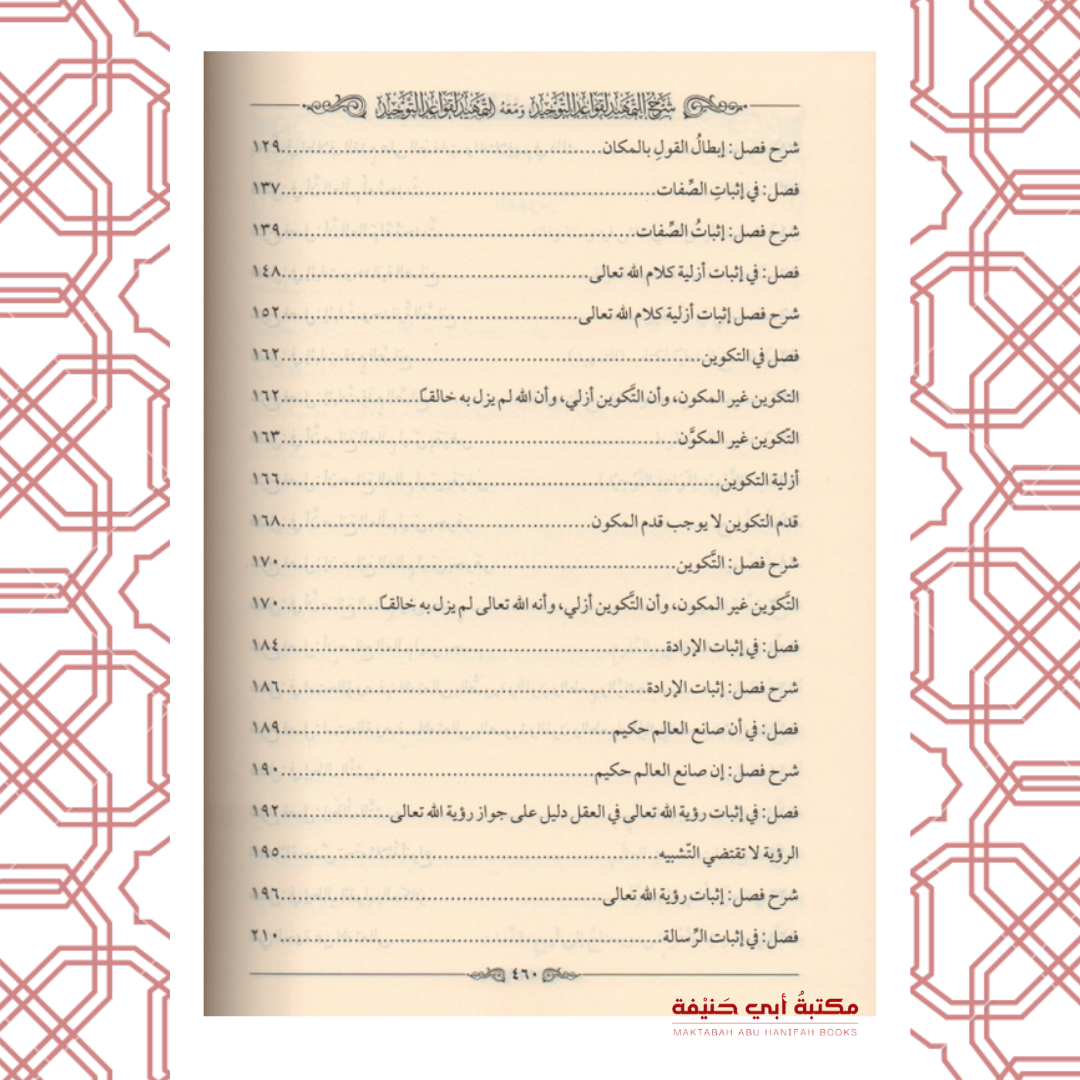 شرح التمهيد لقواعد التوحيد ومعه التمهيد لقواعد التوحيد
شرح فصل: إبطالُ القولِ بالمكان ١٢٩
فصل: في إثباتِ الصِّفات ١٣٧
شرح فصل: إثباتُ الصِّفات ١٣٩
فصل: في إثبات أزلية كلام الله تعالى ١٤٨
شرح فصل إثبات أزلية كلام الله تعالى ١٥٢
فصل في التكوين ١٦٢
التكوين غير المكون، وأن التَّكوين أزلي، وأن الله لم يزل به خالقًا ١٦٢
التّكوين غير المكوَّن ١٦٣
أزلية التكوين ١٦٦
قدم التكوين لا يوجب قدم المكون ١٦٨
شرح فصل: التَّكوين ١٧٠
التَّكوين غير المكون، وأن التَّكوين أزلي، وأنه الله تعالى لم يزل به خالقًا ١٧٠
فصل: في إثبات الإرادة ١٨٤
شرح فصل: إثبات الإرادة ١٨٦
فصل: في أن صانع العالم حكيم ١٨٩
شرح فصل: إن صانع العالم حكيم ١٩٠
فصل: في إثبات رؤية الله تعالى في العقل دليل على جواز رؤية الله تعالى ١٩٢
الرؤية لا تقتضي التّشبيه ١٩٥
شرح فصل: إثبات رؤية الله تعالى ١٩٦
فصل: في إثبات الرِّسالة ٢١٠
٤٦٠
مكتبةُ أبي حَنيْفة
MAKTABAH ABU HANIFAH BOOKS